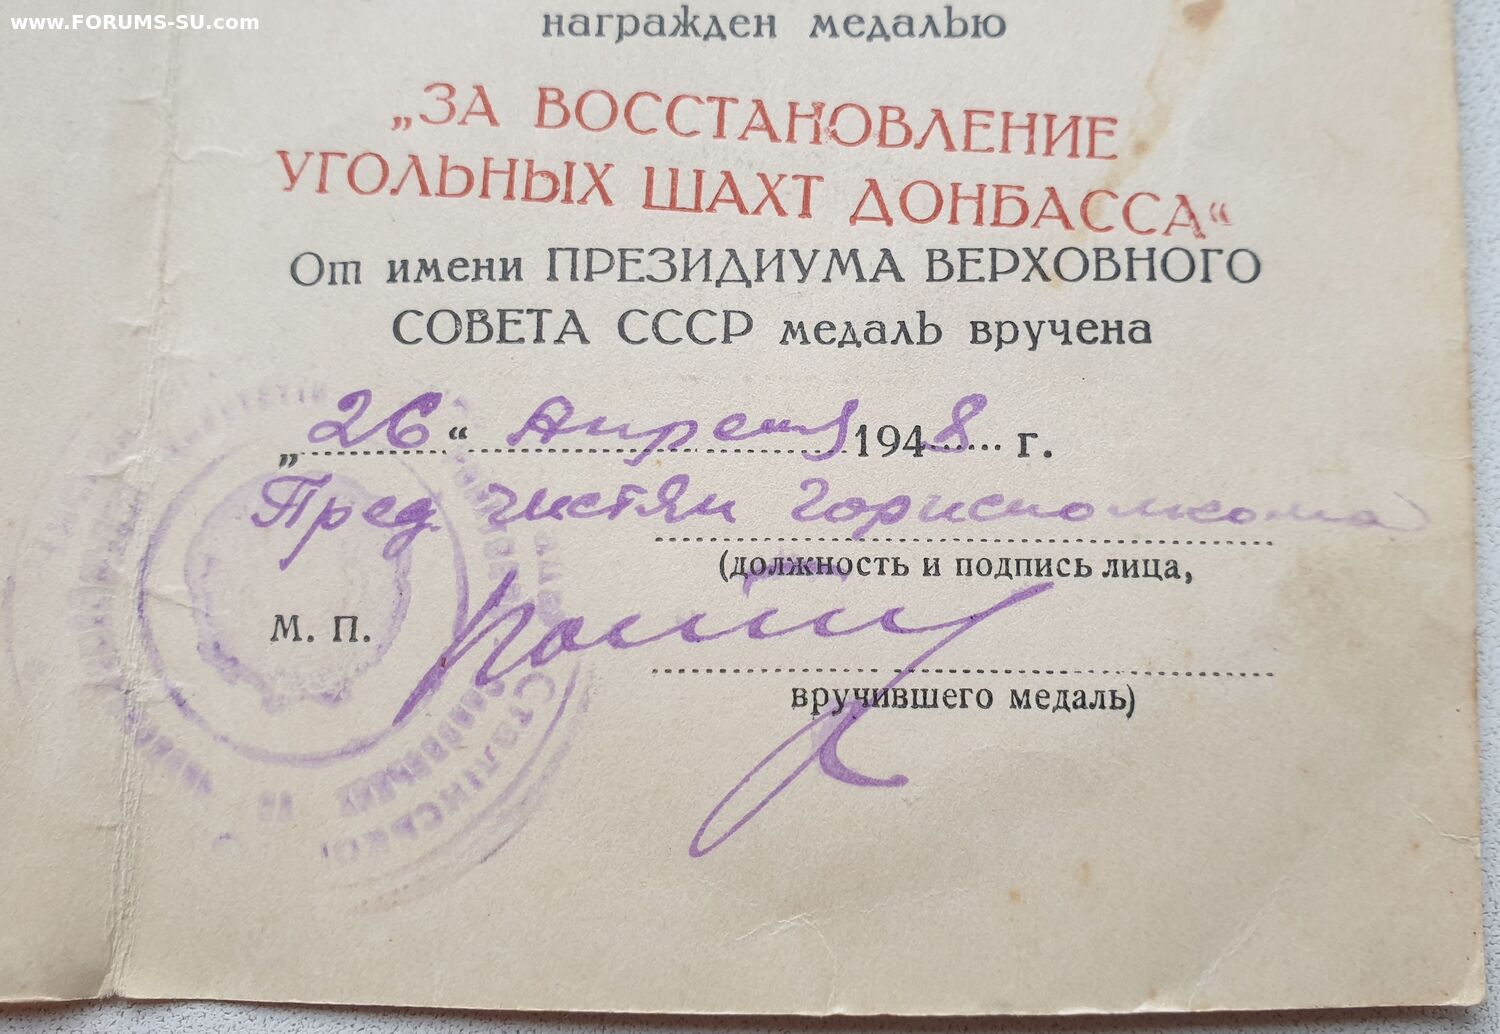 www.FORUMS-SU.com
награжден медалью
„ЗА ВОССТАНОВЛЕНИЕ
УГОЛЬНЫХ ШАХТ ДОНБАССА“
От имени ПРЕЗИДИУМА ВЕРХОВНОГО
СОВЕТА СССР медаль вручена
„26“ Апреля 1948 г.
Пред. Чистяк горисполкома
(должность и подпись лица,
М. П.
вручившего медаль)
Сталінської